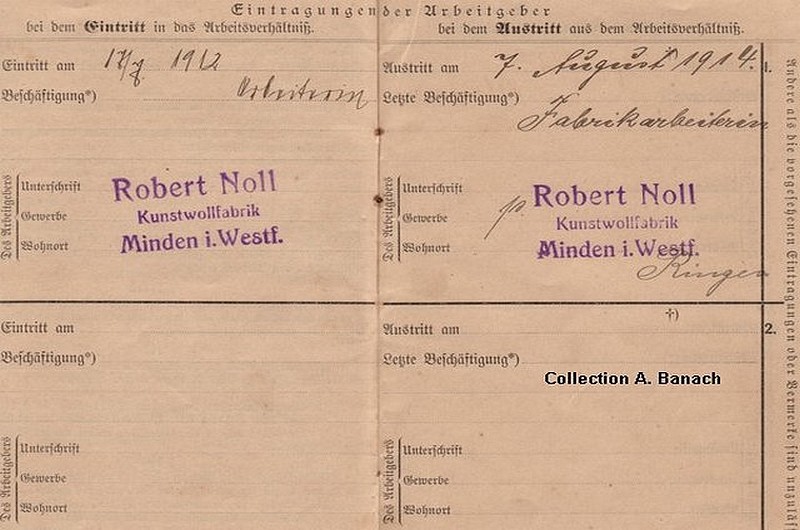 Eintragungen der Arbeitgeber
bei dem Eintritt in das Arbeitsverhältniß.
bei dem Austritt aus dem Arbeitsverhältniß.
Eintritt am 1912
Beschäftigung*) Arbeiterin
Des Arbeitgebers
Unterschrift
Gewerbe
Wohnort
Robert Noll
Kunstwollfabrik
Minden i. Westf.
Austritt am 7. August 1914.
1.
Letzte Beschäftigung*)
Fabrikarbeiterin
Des Arbeitgebers
Unterschrift
Gewerbe
Wohnort
p.
Robert Noll
Kunstwollfabrik
Minden i. Westf.
Eintritt am
Beschäftigung*)
Des Arbeitgebers
Unterschrift
Gewerbe
Wohnort
†)
Austritt am
2.
Letzte Beschäftigung*)
Collection A. Banach
Des Arbeitgebers
Unterschrift
Gewerbe
Wohnort
Andere als die vorgesehenen Eintragungen oder Vermerke sind unzuläs